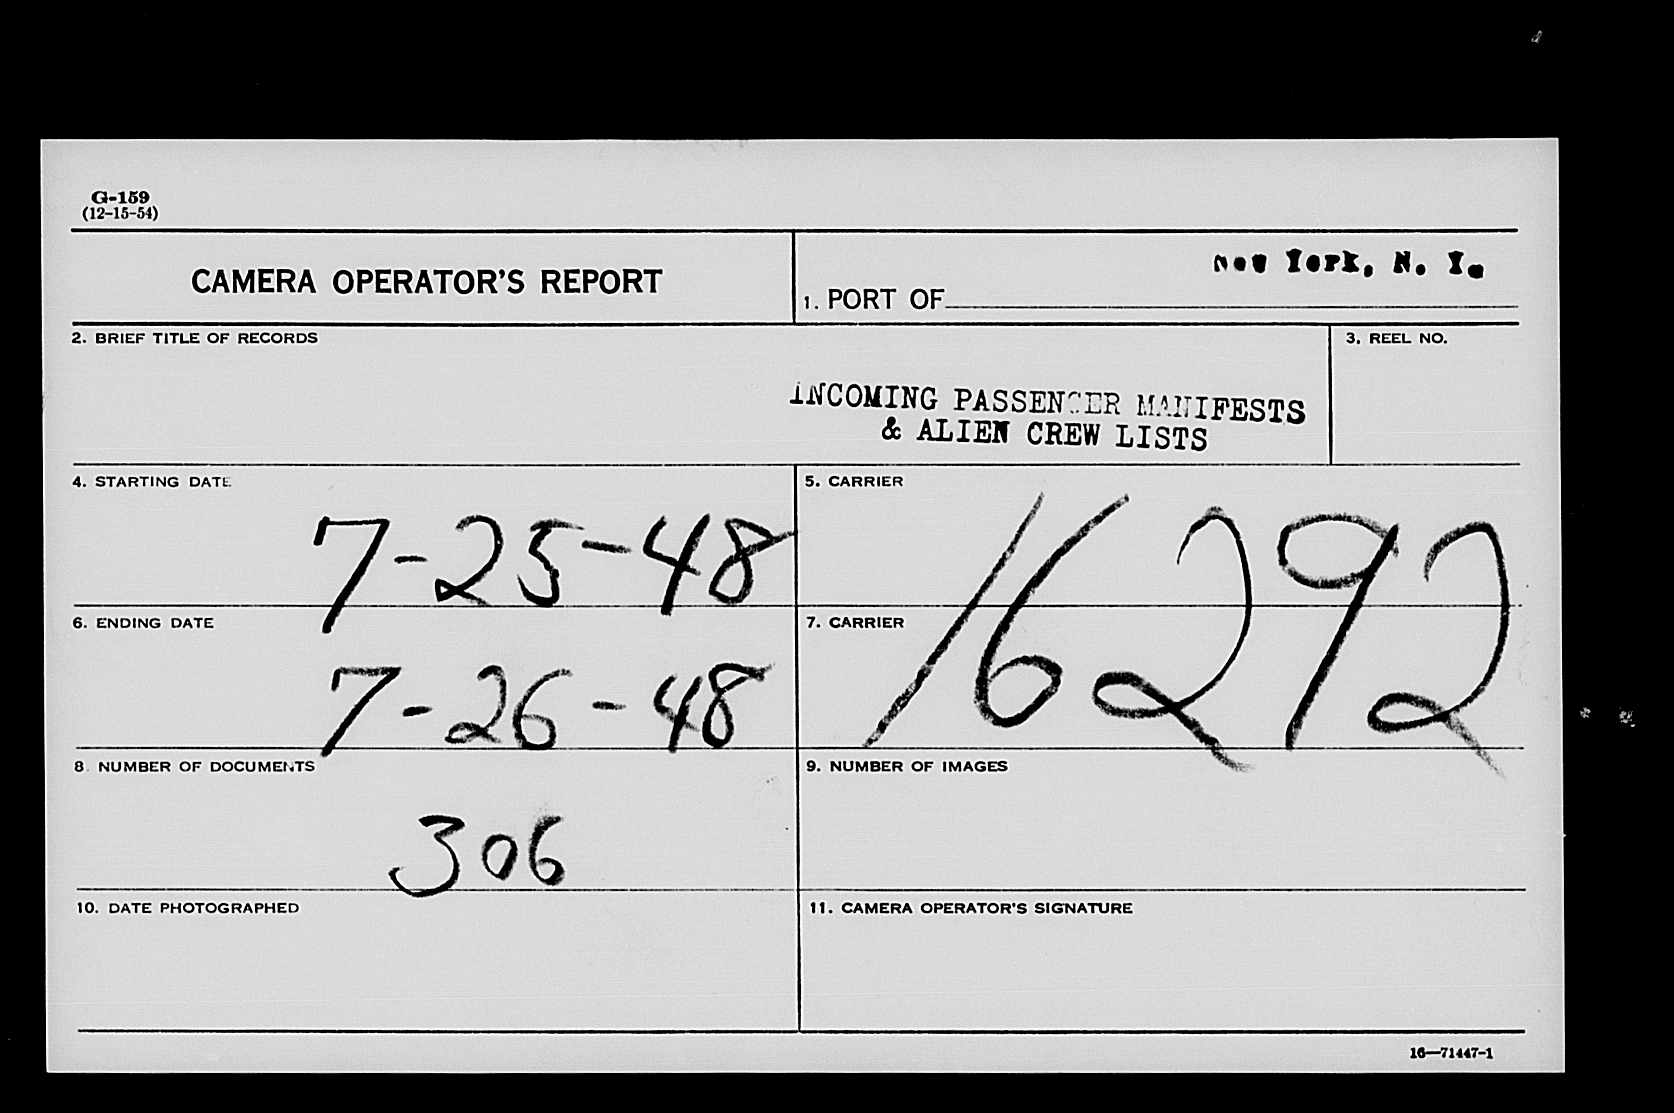 G-159
(12-15-54)
CAMERA OPERATOR'S REPORT
1. PORT OF New York, N. Y.
2. BRIEF TITLE OF RECORDS
3. REEL NO.
INCOMING PASSENGER MANIFESTS
& ALIEN CREW LISTS
4. STARTING DATE
7-25-48
5. CARRIER
16292
6. ENDING DATE
7-26-48
7. CARRIER
8. NUMBER OF DOCUMENTS
306
9. NUMBER OF IMAGES
10. DATE PHOTOGRAPHED
11. CAMERA OPERATOR'S SIGNATURE
16—71447-1